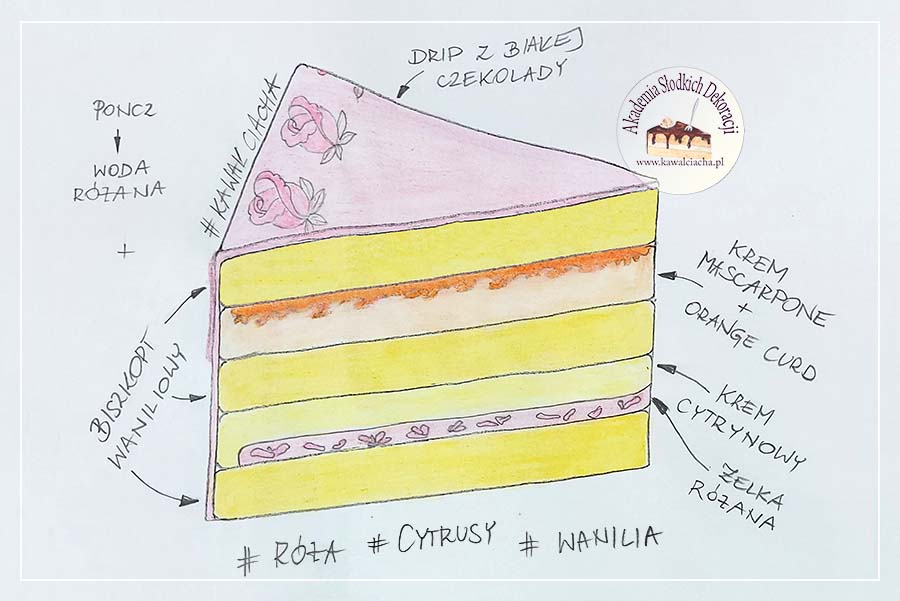 DRIP Z BIAŁEJ
CZEKOLADY
PONCZ
WODA
RÓŻANA
+
# KAWAŁ CIACHA
Akademia Słodkich Dekoracji
www.kawalciacha.pl
KREM
MASCARPONE
+
ORANGE CURD
BISZKOPT
WANILIOWY
KREM
CYTRYNOWY
ŻELKA
RÓŻANA
# RÓŻA # CYTRUSY # WANILIA